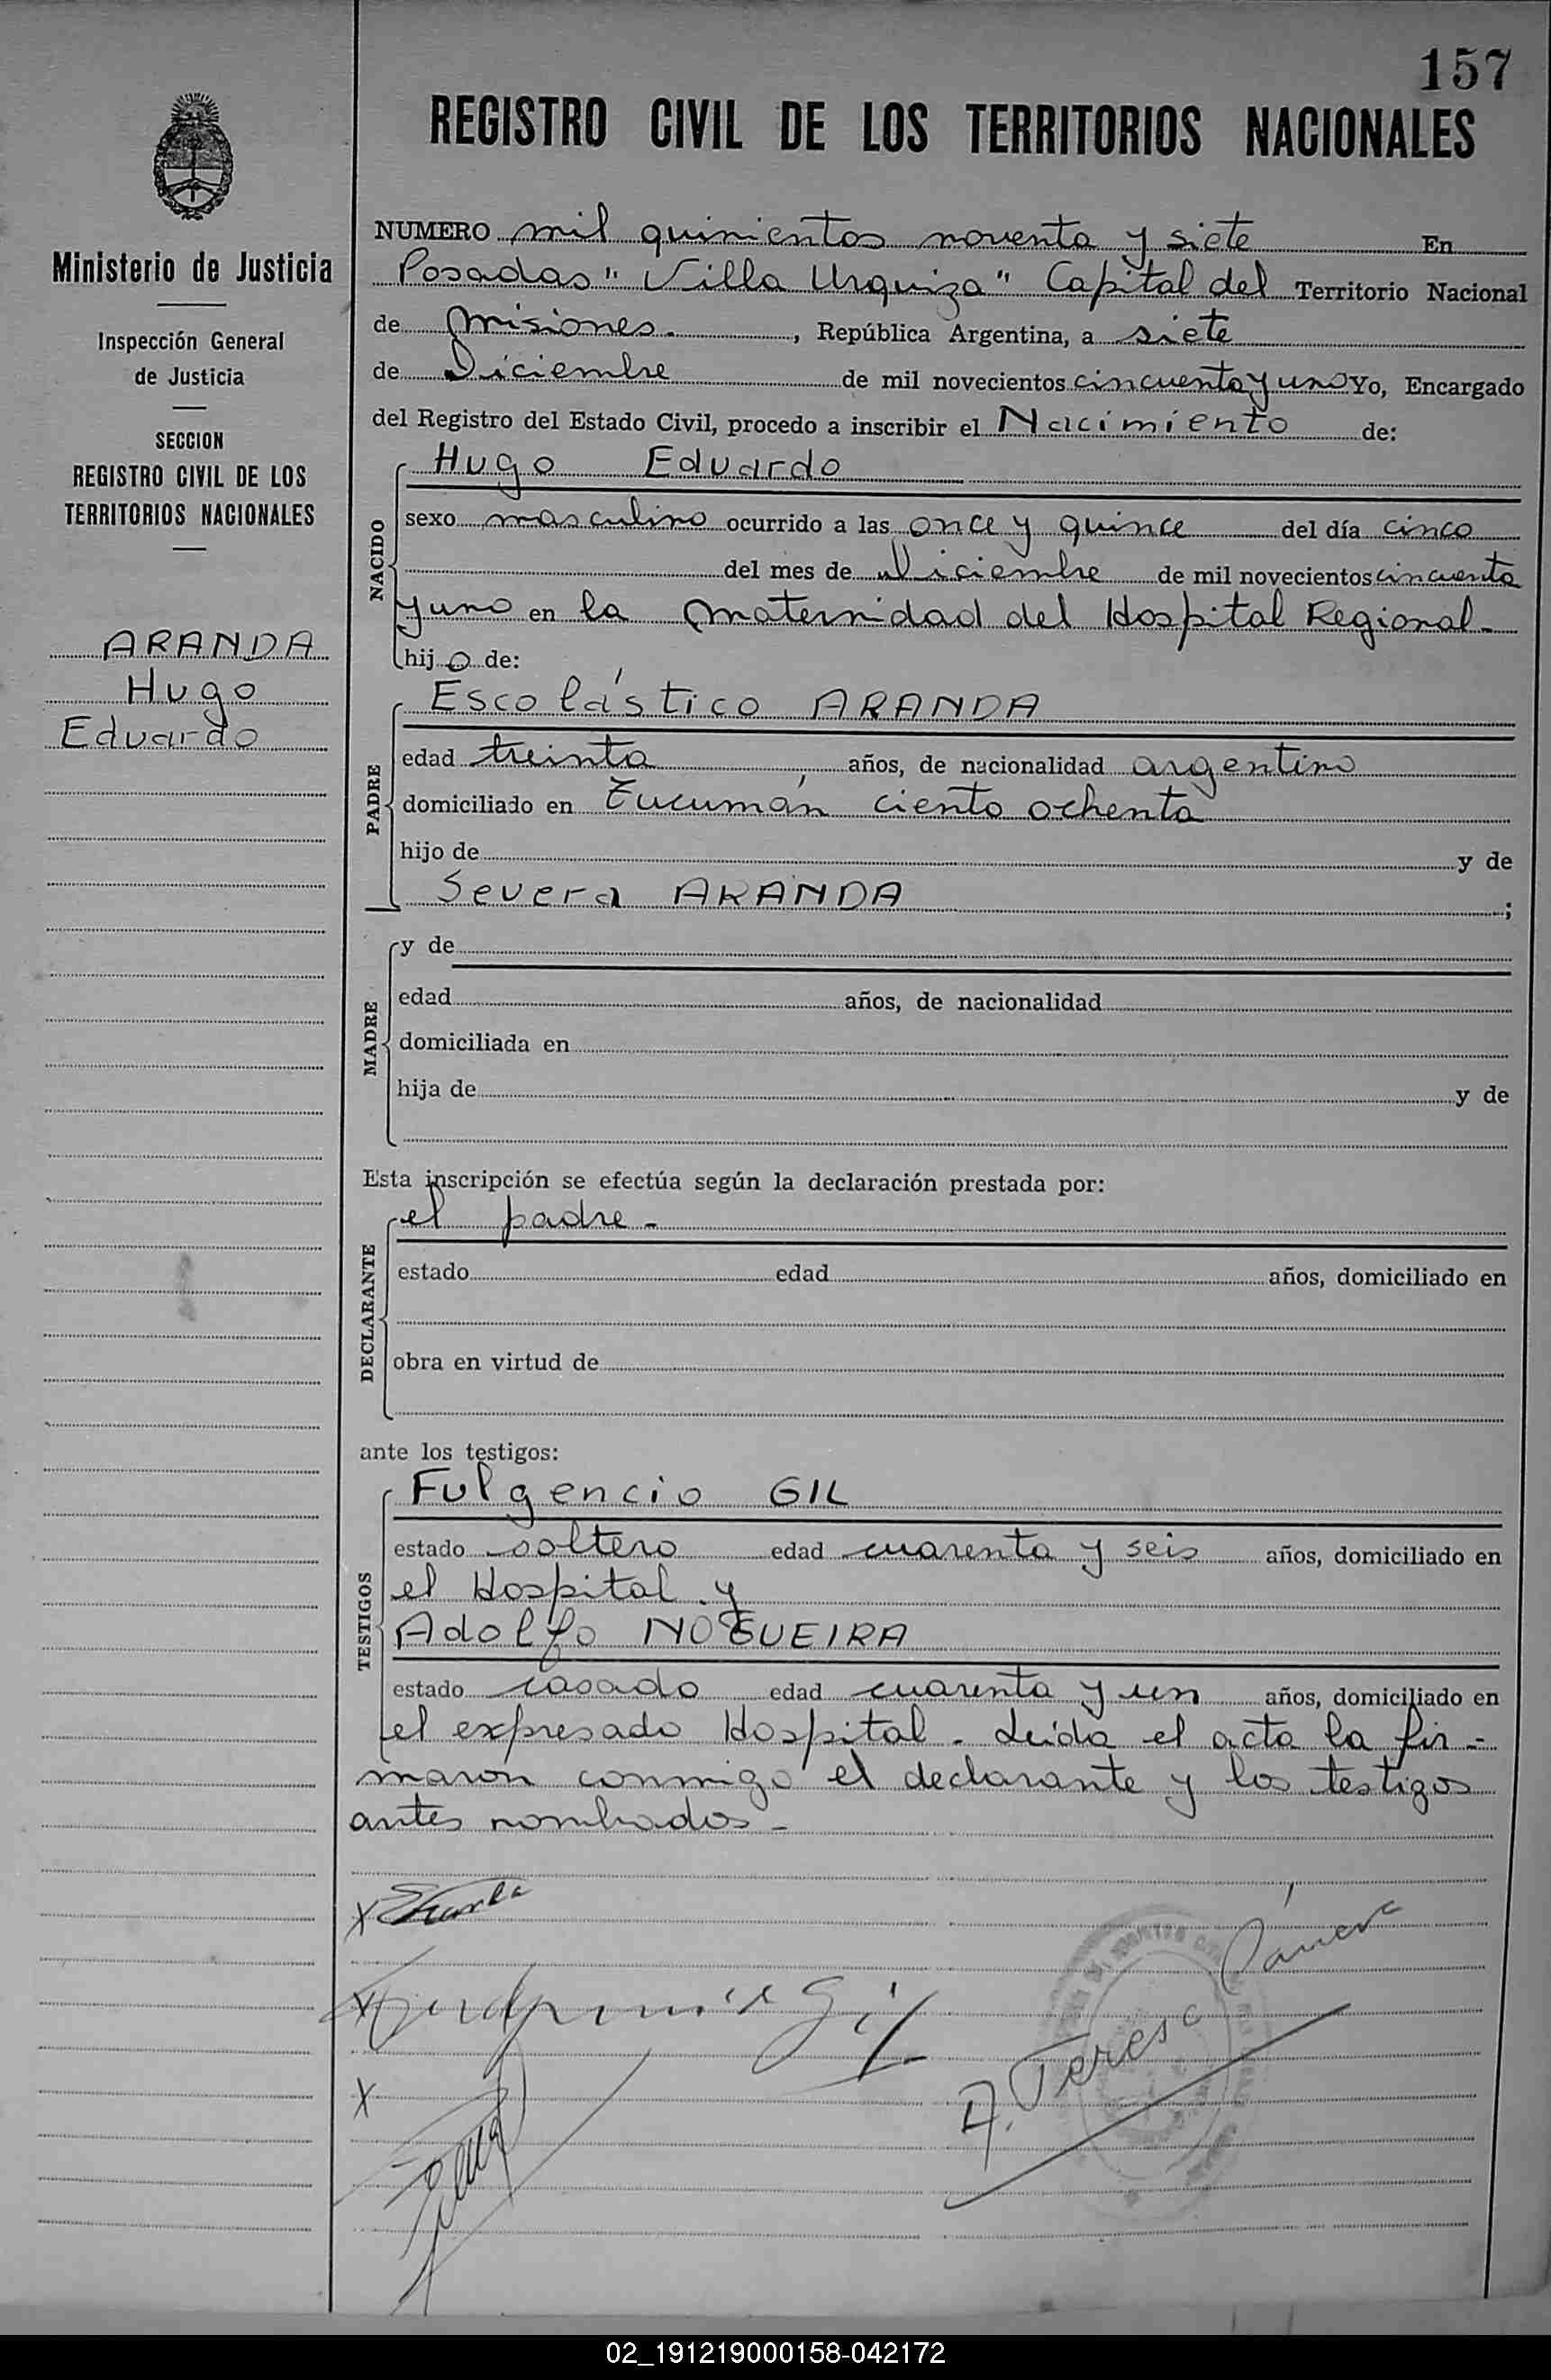 157
REGISTRO CIVIL DE LOS TERRITORIOS NACIONALES
Ministerio de Justicia
Inspección General
de Justicia
SECCION
REGISTRO CIVIL DE LOS
TERRITORIOS NACIONALES
ARANDA
Hugo
Eduardo
NUMERO mil quinientos noventa y siete En
Posadas "Villa Urquiza" Capital del Territorio Nacional
de Misiones. , República Argentina, a siete
de Diciembre de mil novecientos cincuenta y uno Yo, Encargado
del Registro del Estado Civil, procedo a inscribir el Nacimiento de:
NACIDO
Hugo Eduardo
sexo masculino ocurrido a las once y quince del día cinco
del mes de Diciembre de mil novecientos cincuenta
y uno en la Maternidad del Hospital Regional.-
hijo de:
PADRE
Escolástico ARANDA
edad treinta años, de nacionalidad argentino
domiciliado en Tucumán ciento ochenta
hijo de y de
Severa ARANDA ;
MADRE
y de
edad años, de nacionalidad
domiciliada en
hija de y de
Esta inscripción se efectúa según la declaración prestada por:
DECLARANTE
el padre -
estado edad años, domiciliado en
obra en virtud de
ante los testigos:
TESTIGOS
Fulgencio GIL
estado soltero edad cuarenta y seis años, domiciliado en
el Hospital y
Adolfo NOGUEIRA
estado casado edad cuarenta y un años, domiciliado en
el expresado Hospital. Leída el acta la fir-
maron conmigo el declarante y los testigos
antes nombrados -
X
X Gil
X
A. Teresa
02_191219000158-042172